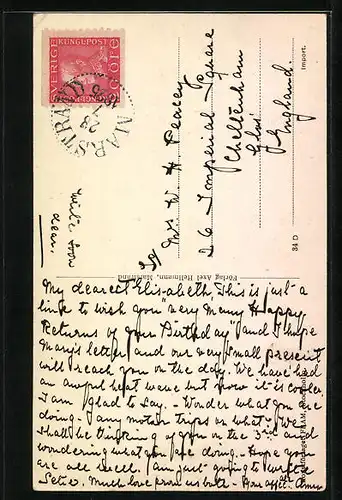 SVERIGE
KUNGL.POST
MARSTRAND
23
Write soon
dear.
Mrs W H Peacey
26 Imperial Square
Cheltenham
Glos
England.
Import.
34 D
Förlag Axel Hellmann, Marstrand
My dearest Elis-abeth, This is just a
line to wish you very many Happy
Returns of your Birthday and I hope
Mary's letter and our very small present
will reach you on the day. We have had
an awful heat wave but now it is cooler
I am glad to say. - Wonder what you are
doing - any motor trips or what - We
shall be thinking of you on the 3rd and
wondering what you are doing - Hope you
are all well. Am just going to write to
much love from us both - Your aff.